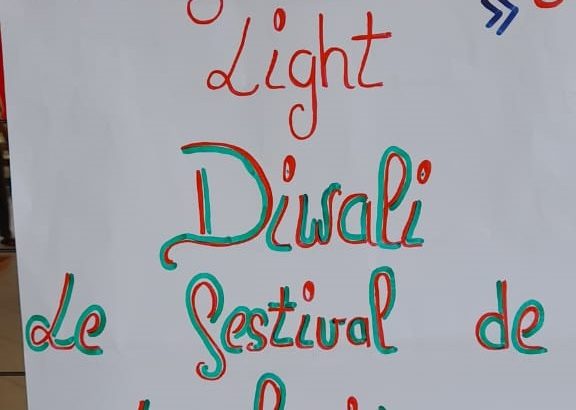 »
Light
Diwali
Le festival de